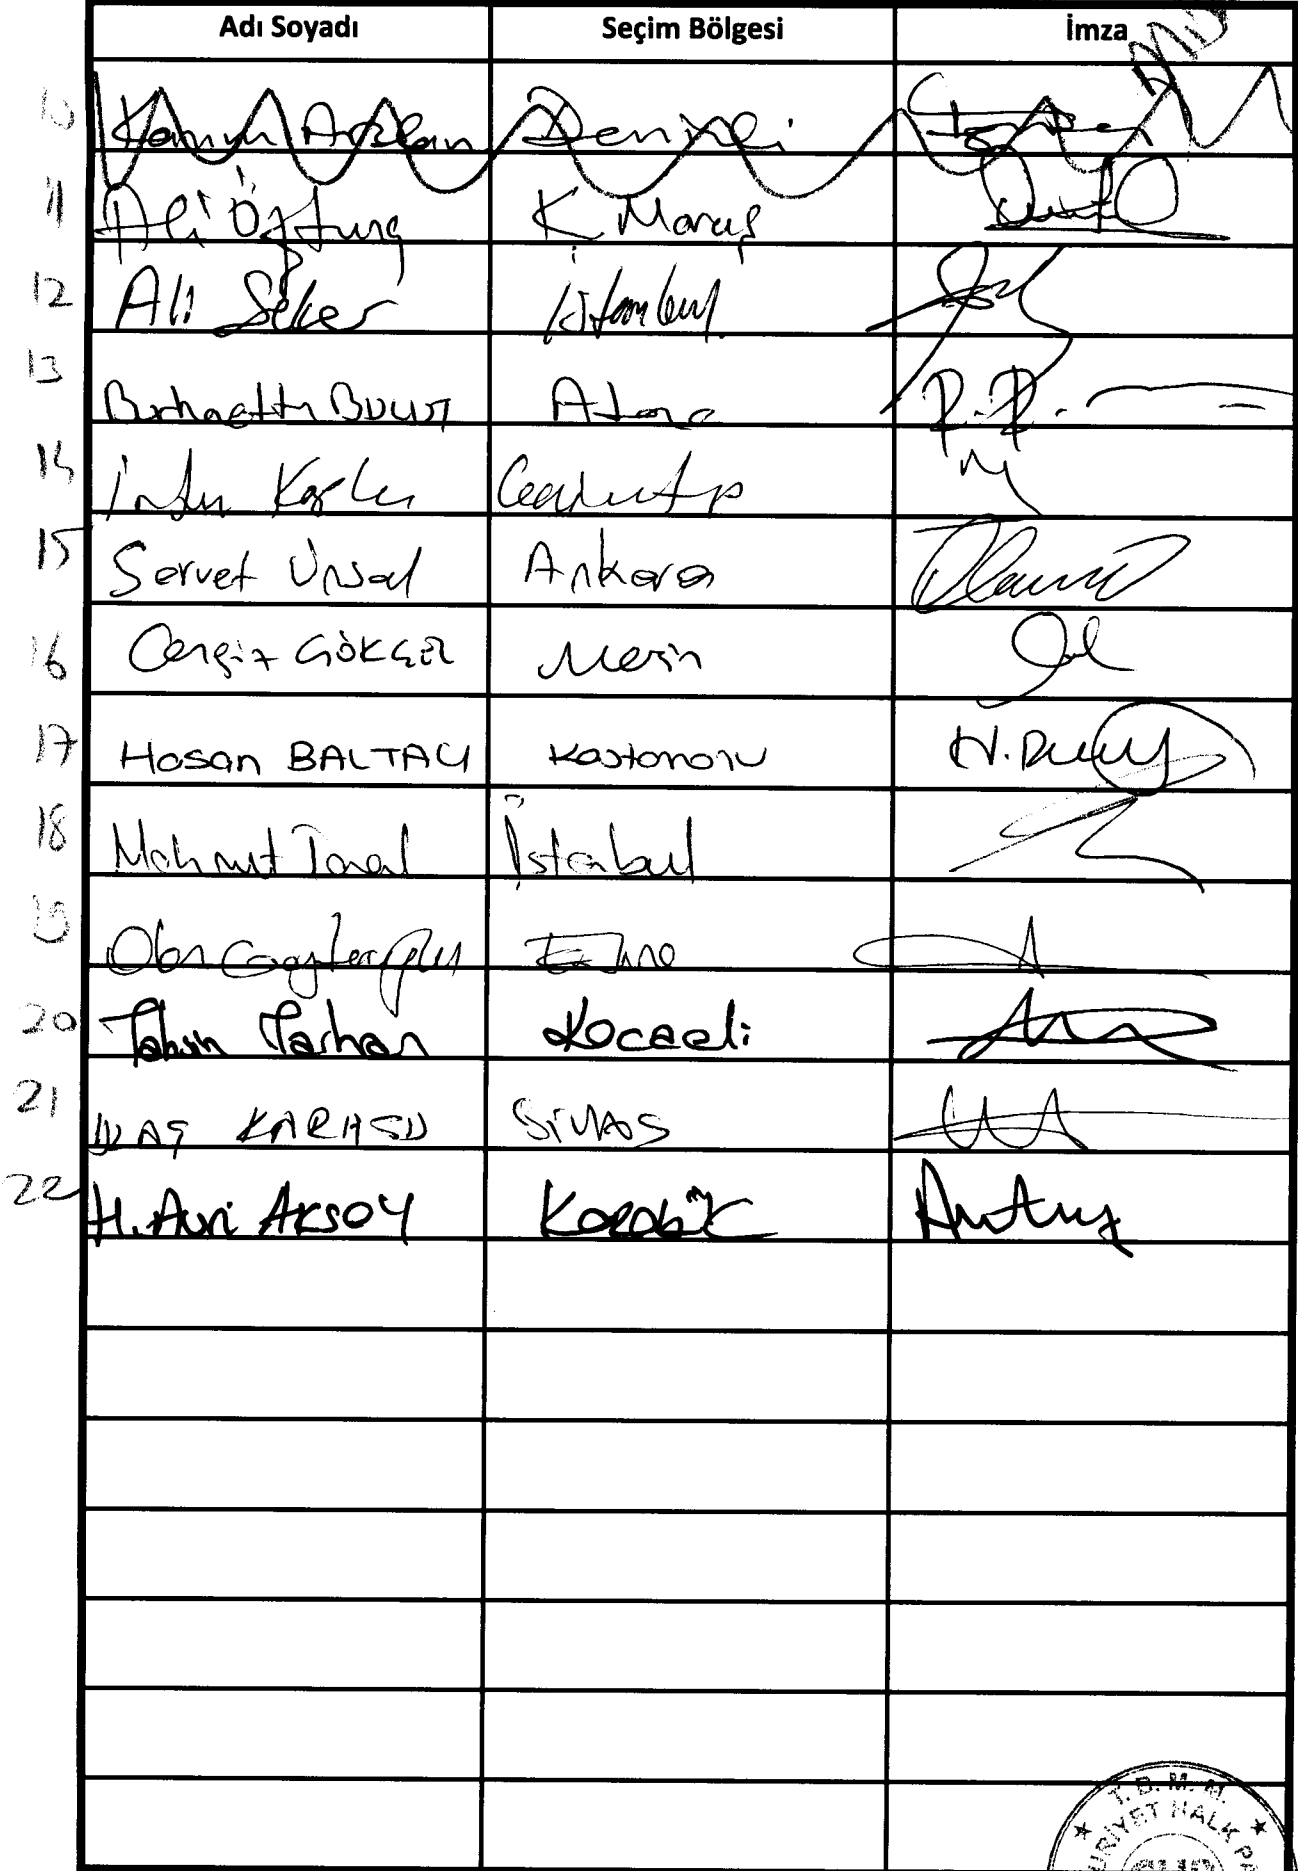 Adı Soyadı Seçim Bölgesi İmza
10 Kazım Arslan Denizli
11 Ali Öztunç K. Maraş
12 Ali Şeker İstanbul
13 Burhanettin BULUT Adana
14 İrfan Kaplan Gaziantep
15 Servet Ünsal Ankara
16 Cengiz GÖKÇEL Mersin
17 Hasan BALTACI Kastamonu
18 Mahmut Tanal İstanbul
19 Okan Gaytancıoğlu Edirne
20 Tahsin Tarhan Kocaeli
21 ULAŞ KARASU SİVAS
22 H. Avni AKSOY Karabük
T. B. M. M.
HALK